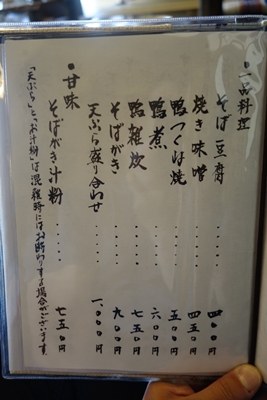 一品料理
そば豆腐 ・・・・ 四〇〇円
焼き味噌 ・・・・ 四五〇円
鴨つくね焼 ・・・・ 五〇〇円
鴨煮 ・・・・ 六〇〇円
鴨雑炊 ・・・・ 七五〇円
そばがき ・・・・ 九〇〇円
天ぷら盛り合わせ ・・・・ 一、〇〇〇円
甘味
そばがき汁粉 ・・・・ 七五〇円
「天ぷら」と「お汁粉」は混雑時にはお断りする場合がございます